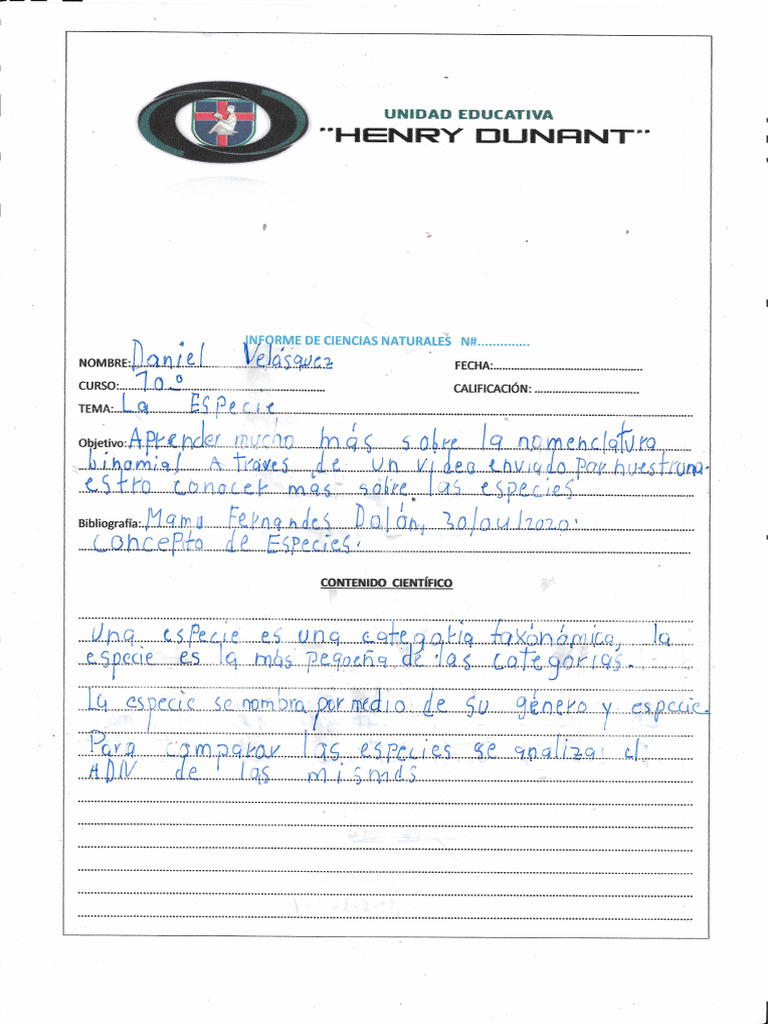 UNIDAD EDUCATIVA
"HENRY DUNANT"
INFORME DE CIENCIAS NATURALES N#..............
NOMBRE: Daniel Velásquez FECHA:
CURSO: 10.º CALIFICACIÓN:
TEMA: La Especie
Objetivo: Aprender mucho más sobre la nomenclatura
binomial A traves de un video enviado por nuestr
estro conocer más sobre las especies
Bibliografía: Fernandes 30/04/2020.
Concepto de Especies.
CONTENIDO CIENTÍFICO
Una especie es una categoria taxónámica, la
especie es la más pequeña de las categorias.
La especie se nombra por medio de su género y especie.
Para comparar las especies se analiza el
ADN de las mismas